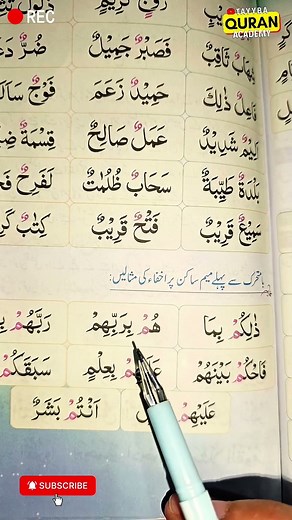 REC
TAYYBA
QURAN
ACADEMY
رِزْقٌ كَرِيْمٌ
شِهَابٌ ثَاقِبٌ فَصَبْرٌ جَمِيْلٌ ضُرٌّ
فَاعِلٌ ذٰلِكَ حَمِيْدٌ زَعَمَ فَوْجٌ
اَلِيْمٌ شَدِيْدٌ عَمَلٌ صَالِحٌ قِسْمَةٌ
بَلْدَةٌ طَيِّبَةٌ سَحَابٌ ظُلُمٰتٌ لَفَرِحٌ
سَمِيْعٌ قَرِيْبٌ فَتْحٌ قَرِيْبٌ كِتٰبٌ
متحرک سے پہلے میم ساکن پر اخفاء کی مثالیں:
ذٰلِكُمْ بِمَا هُمْ بِرَبِّهِمْ رَبَّهُمْ
فَاحْكُمْ بَيْنَهُمْ بِعِلْمٍ سَبَقَكُمْ
عَلَيْهِمْ اَنْتُمْ بَشَرٌ
SUBSCRIBE